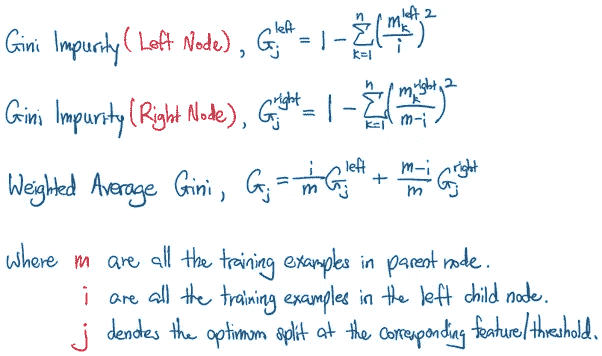 Gini Impurity (Left Node), G_j^left = 1 - Σ_{k=1}^{n} (m_k^left / i)^2
Gini Impurity (Right Node), G_j^right = 1 - Σ_{k=1}^{n} (m_k^right / m-i)^2
Weighted Average Gini, G_j = i/m G_j^left + m-i/m G_j^right
where m are all the training examples in parent node.
i are all the training examples in the left child node.
j denotes the optimum split at the corresponding feature/threshold.